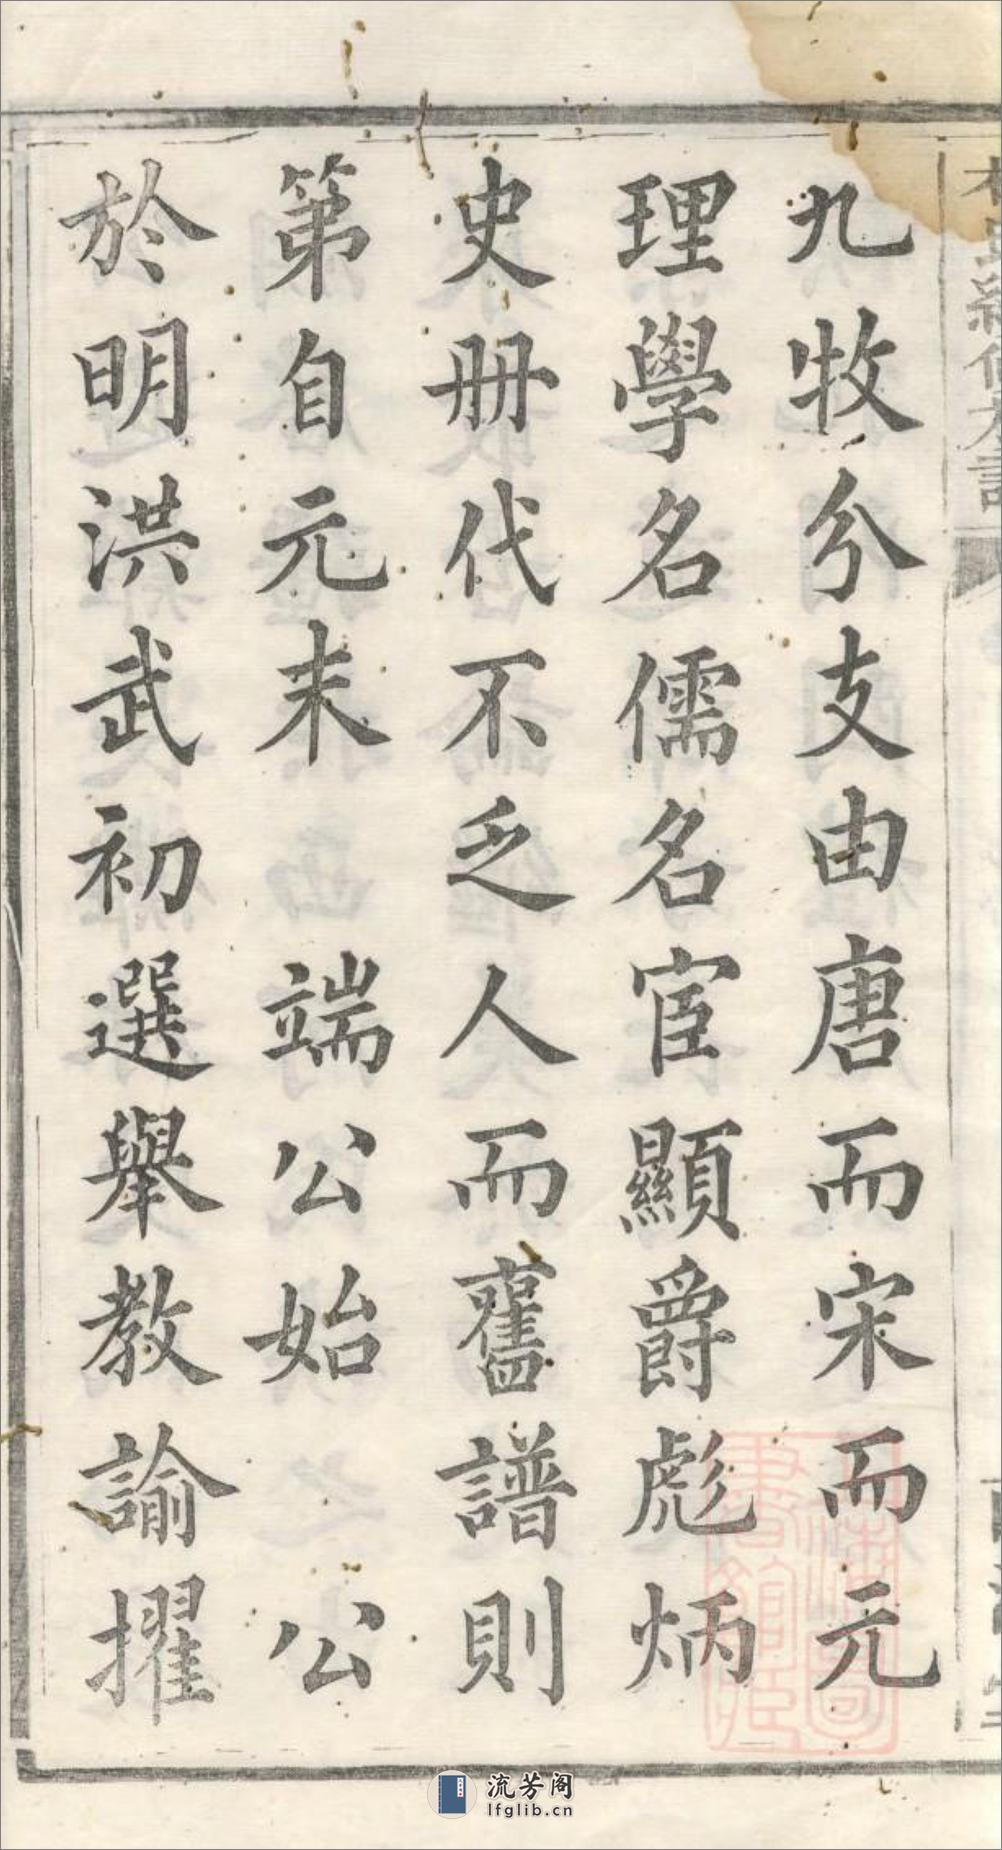 九牧分支由唐而宋而元
理學名儒名宦顯爵彪炳
史册代不乏人而舊譜則
第自元末 端公始 公
於明洪武初選舉教諭擢
流芳阁
lfglib.cn